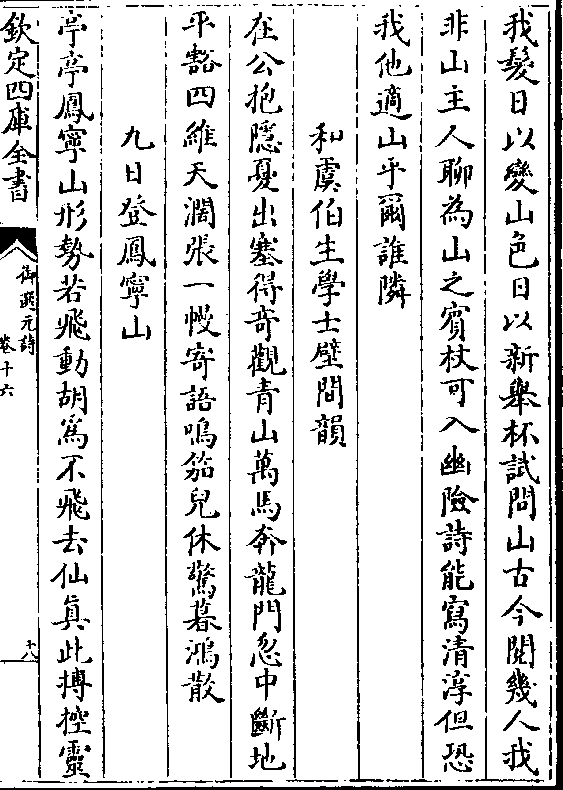 我髮日以變山色日以新舉杯試問山古今閱幾人我
非山主人聊為山之賓杖可入幽險詩能寫清淳但恐
我他適山乎爾誰隣
和虞伯生學士壁間韻
在公抱隱憂出塞得奇觀青山萬馬奔龍門忽中斷地
平豁四維天濶張一幔寄語鳴笳兒休驚暮鴻散
九日登鳳寧山
亭亭鳳寧山形勢若飛動胡為不飛去仙真此摶控靈
欽定四庫全書
御選元詩
卷十六
十八